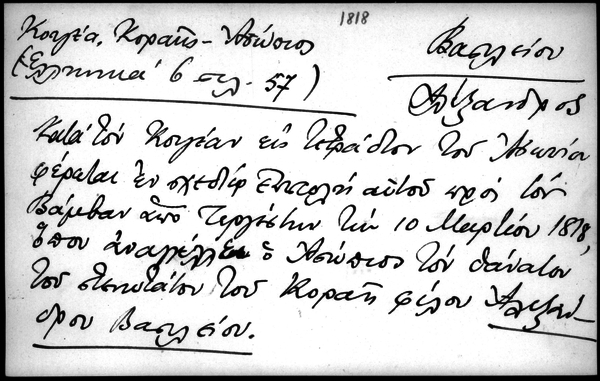 1818
Κουγέα, Κοραῆς - Ἀσώπιος
(Ἑλληνικά 6 σελ. 57)
Βασιλείου
Ἀλέξανδρος
Κατά τόν Κουγέαν εἰς τετράδιον τοῦ Ἀσωπίου
φέρεται ἐν σχεδίῳ ἐπιστολή αὐτοῦ πρός τόν
Βάμβαν ἀπό Τεργέστην τήν 10 Μαρτίου 1818,
ὅπου ἀναγγέλλει ὁ Ἀσώπιος τόν θάνατον
τοῦ στενωτάτου τοῦ Κοραῆ φίλου Ἀλεξάν-
δρου Βασιλείου.